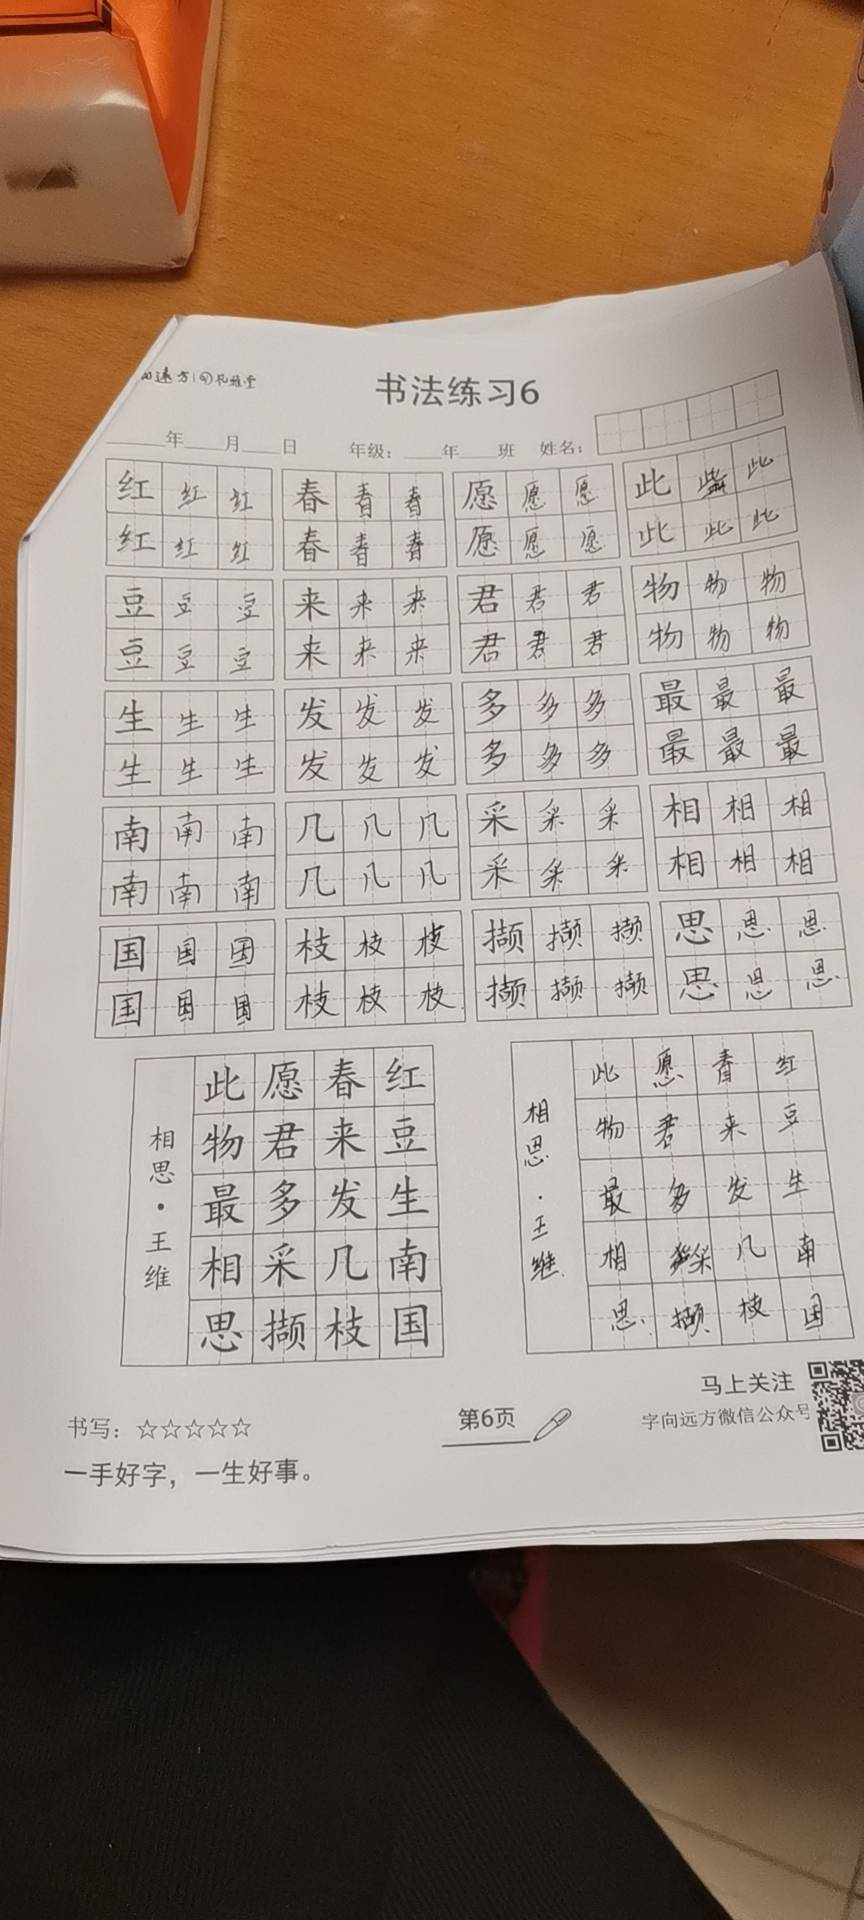 书法练习6
年 月 日 年级： 年 班 姓名：
红 红 红 春 春 春 愿 愿 愿 此 此
红 红 红 春 春 春 愿 愿 愿 此 此 此
豆 豆 豆 来 来 来 君 君 君 物 物 物
豆 豆 豆 来 来 来 君 君 君 物 物 物
生 生 生 发 发 发 多 多 多 最 最 最
生 生 生 发 发 发 多 多 多 最 最 最
南 南 南 几 几 几 采 采 采 相 相 相
南 南 南 几 几 几 采 采 采 相 相 相
国 国 国 枝 枝 枝 撷 撷 撷 思 思 思
国 国 国 枝 枝 枝 撷 撷 撷 思 思 思
红豆生南国
春来发几枝
愿君多采撷
此物最相思
相思·王维
红豆生南国
春来发几枝
愿君多采撷
此物最相思
相思·王维
书写：☆☆☆☆☆
一手好字，一生好事。
第6页
马上关注
字向远方微信公众号